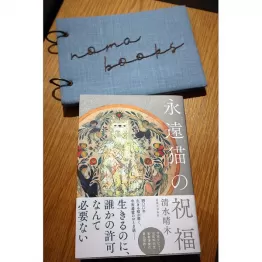 noma
books
永遠猫の祝福
清水晴木
生きるのに、
誰かの許可
なんて
必要ない